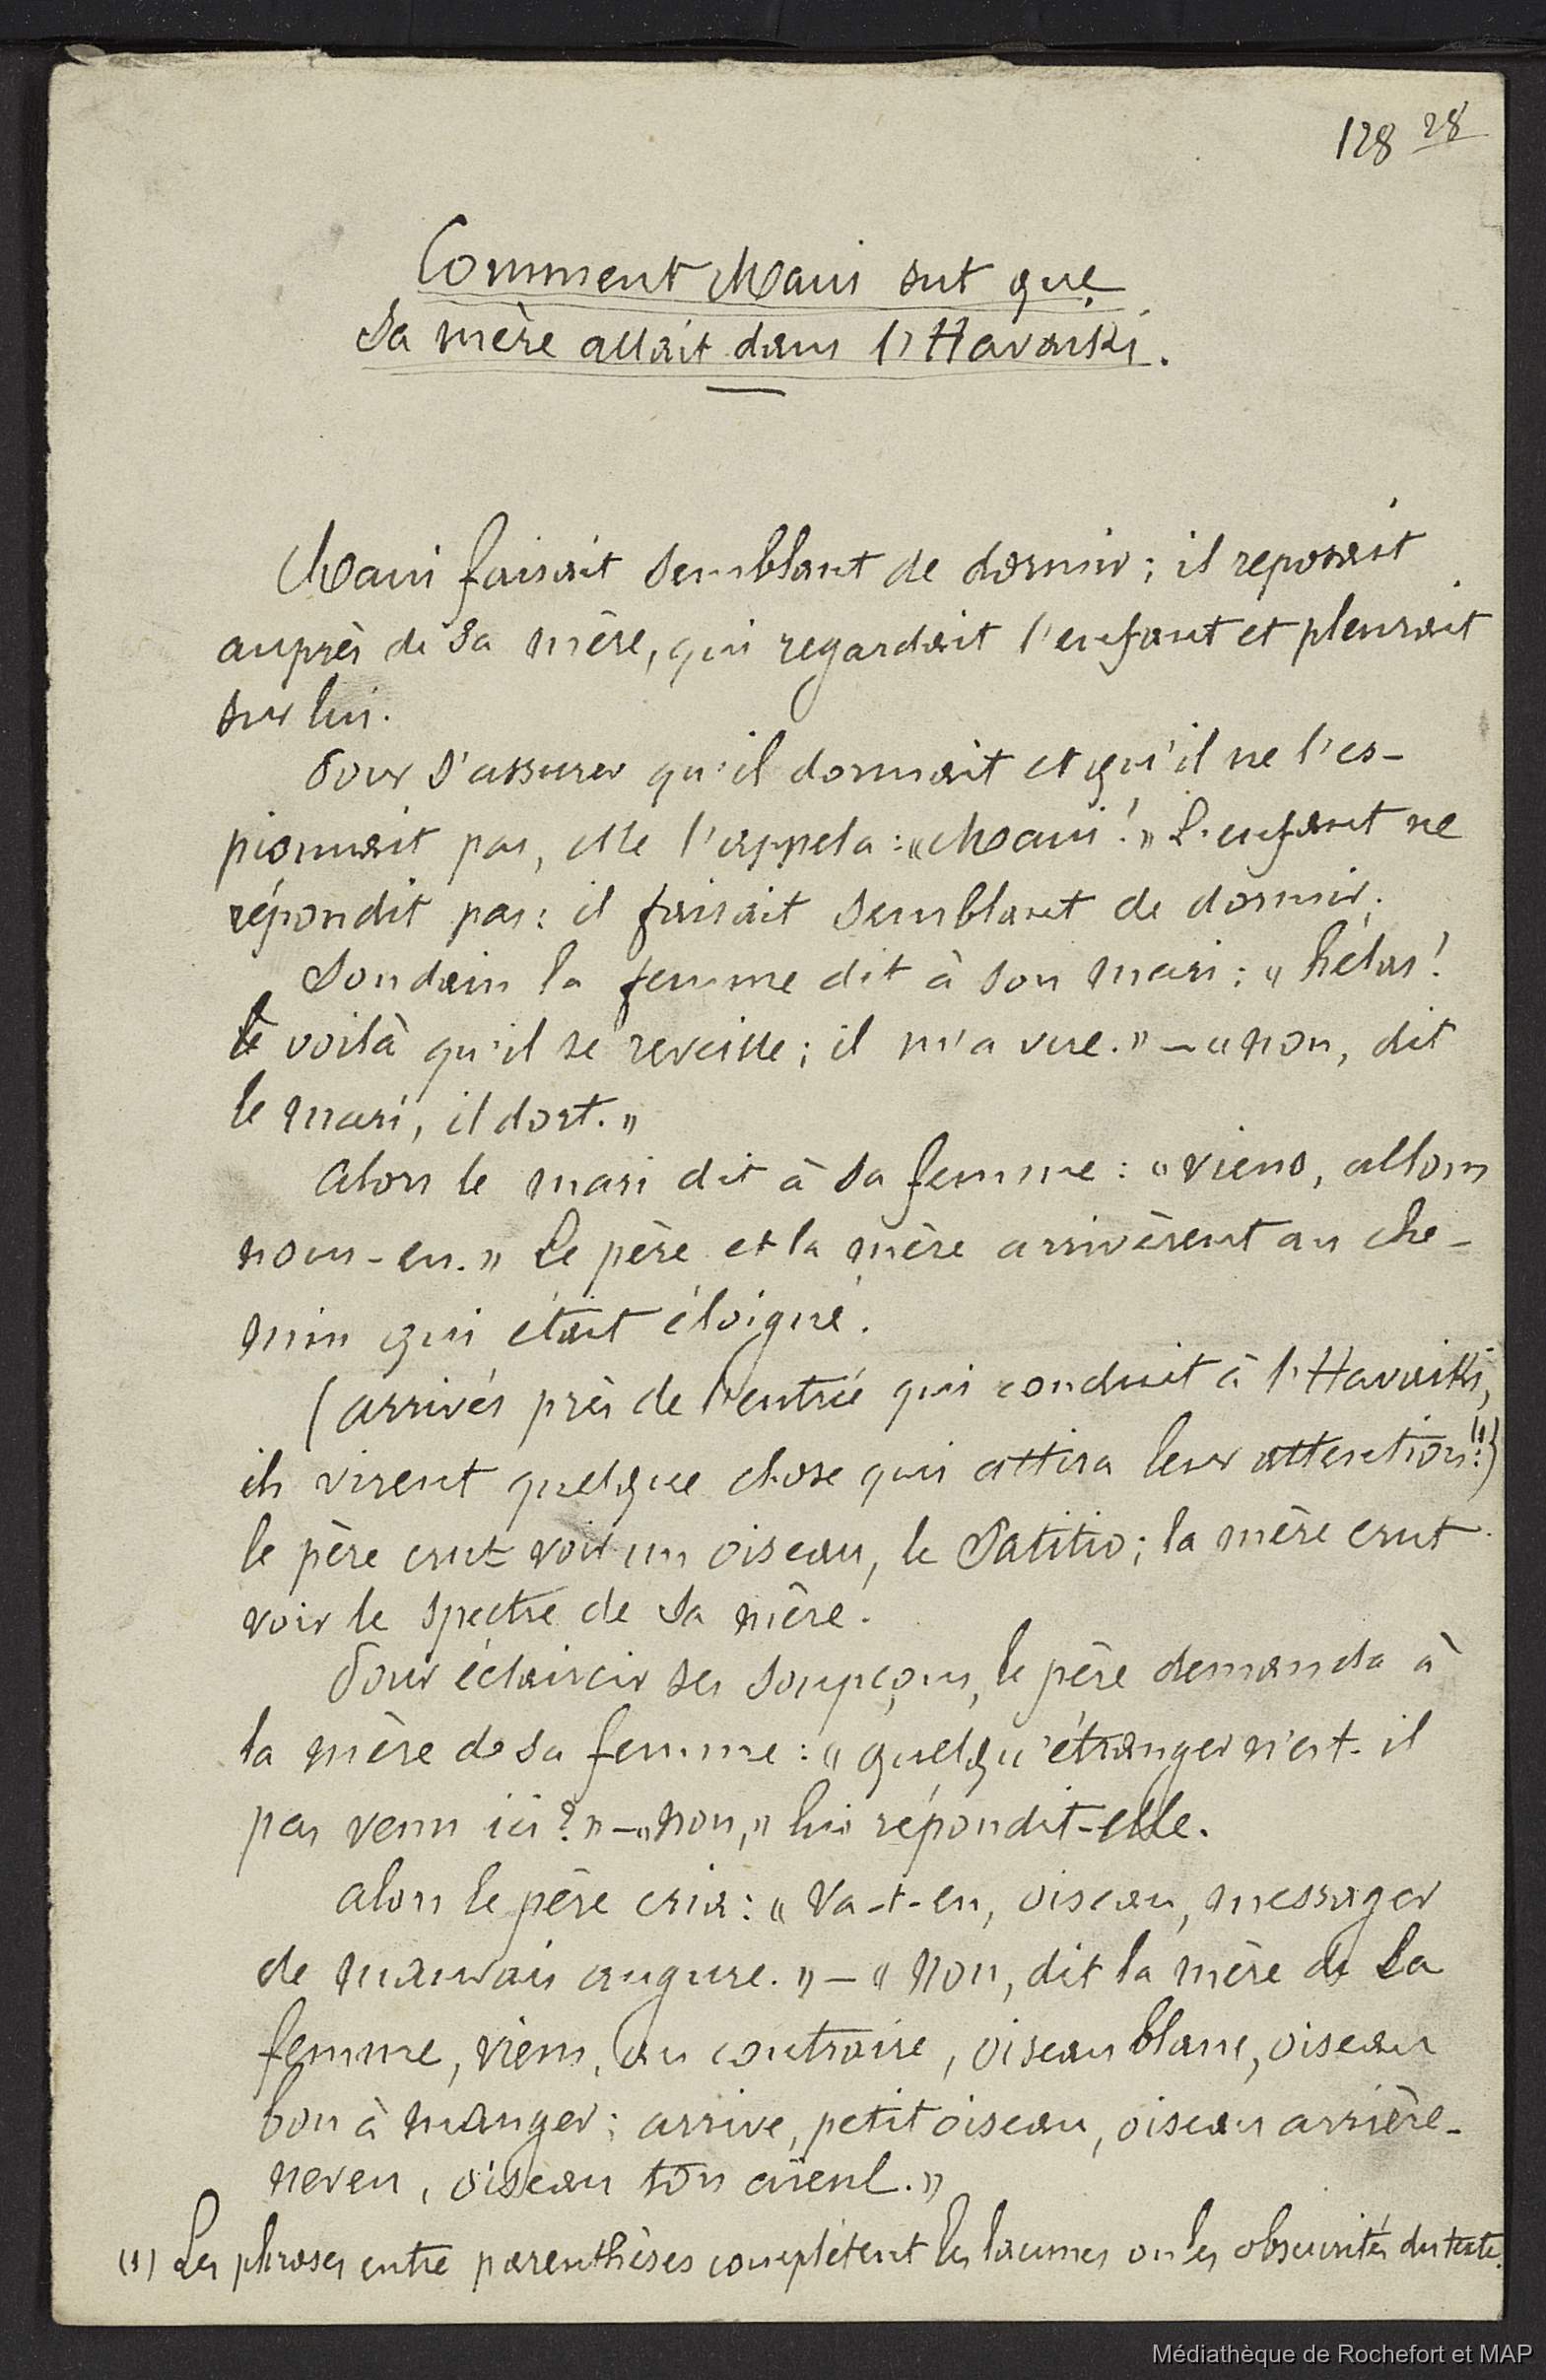 128 28
Comment Maui sut que
sa mère allait dans l'Havaiki.
Maui faisait semblant de dormir; il reposait
auprès de sa mère, qui regardait l'enfant et pleurait
sur lui.
Pour s'assurer qu'il dormait et qu'il ne l'es-
pionnait pas, elle l'appela: « Maui! » L'enfant ne
répondit pas: il faisait semblant de dormir.
Soudain la femme dit à son mari: « hélas!
le voilà qu'il se reveille; il m'a vue. » — « non, dit
le mari, il dort. »
Alors le mari dit à sa femme: « viens, allons
nous-en. » Le père et la mère arrivèrent au che-
min qui était éloigné.
(arrivés près de l'entrée qui conduit à l'Havaiki,
ils virent quelque chose qui attira leur attention: (1))
le père crut voir un oiseau, le Patitio; la mère crut
voir le spectre de sa mère.
Pour éclaircir ses soupçons, le père demanda à
la mère de sa femme: « quelqu'étranger n'est-il
pas venu ici? » — « non, » lui répondit-elle.
alors le père cria: « Va-t-en, oiseau, messager
de mauvais augure. » — « Non, dit la mère de la
femme, viens, au contraire, oiseau blanc, oiseau
bon à manger; arrive, petit oiseau, oiseau arrière-
neveu, oiseau ton aïeul. »
(1) Les phrases entre parenthèses complètent les lacunes ou les obscurités du texte.
Médiathèque de Rochefort et MAP